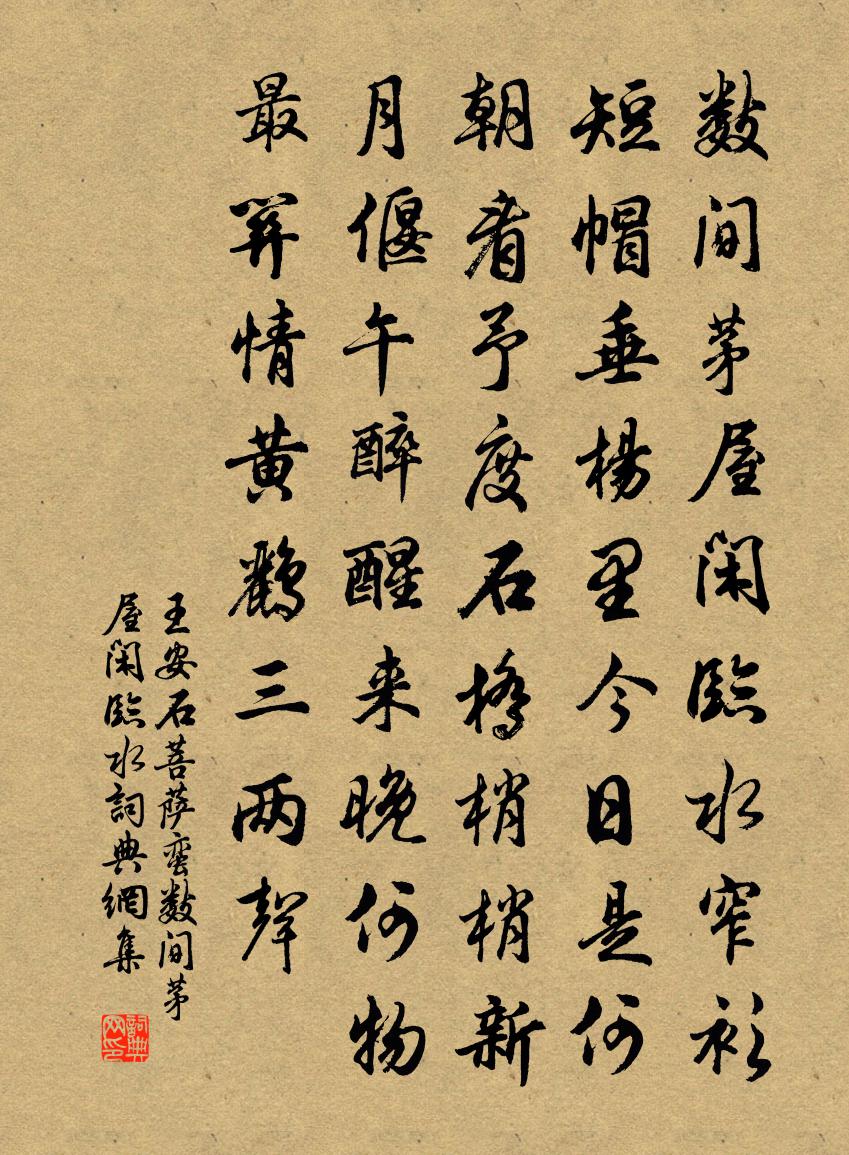 数间茅屋闲临水窄衫
短帽垂杨里今日是何
朝看予度石橋梢梢新
月偃午醉醒来晚何物
最関情黄鸝三两聲
王安石菩萨蛮数间茅
屋闲临水詞典網集
詞典
网印